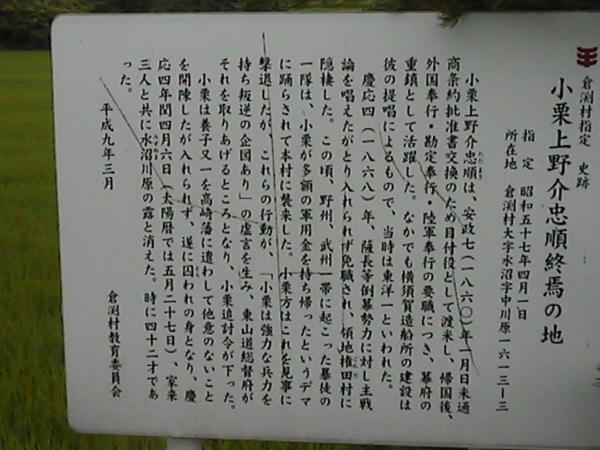 倉渕村指定 史跡
小栗上野介忠順終焉の地
指定 昭和五十七年四月一日
所在地 倉渕村大字水沼字中川原一六一三ー三
小栗上野介忠順は、安政七(一八六〇)年一月日米通
商条約批准書交換のため目付役として渡米し、帰国後、
外国奉行・勘定奉行・陸軍奉行の要職につき、幕府の
重鎮として活躍した。なかでも横須賀造船所の建設は
彼の提唱によるもので、当時は東洋一といわれた。
慶応四(一八六八)年、薩長等倒幕勢力に対し主戦
論を唱えたがとり入れられず免職され、領地権田村に
隠棲した。この頃、野州、武州一帯に起こった暴徒の
一隊は、小栗が多額の軍用金を持ち帰ったというデマ
に踊らされて本村に襲来した。小栗方はこれを見事に
撃退したが、これらの行動が、「小栗は強力な兵力を
持ち叛逆の企図あり」の虚言を生み、東山道総督府が
それを取りあげるところとなり、小栗追討令が下った。
小栗は養子又一を高崎藩に遣わして他意のないこと
を開陳したが入れられず、遂に囚われの身となり、慶
応四年閏四月六日(太陽暦では五月二十七日)、家来
三人と共に水沼川原の露と消えた。時に四十二才であ
った。
平成九年三月
倉渕村教育委員会